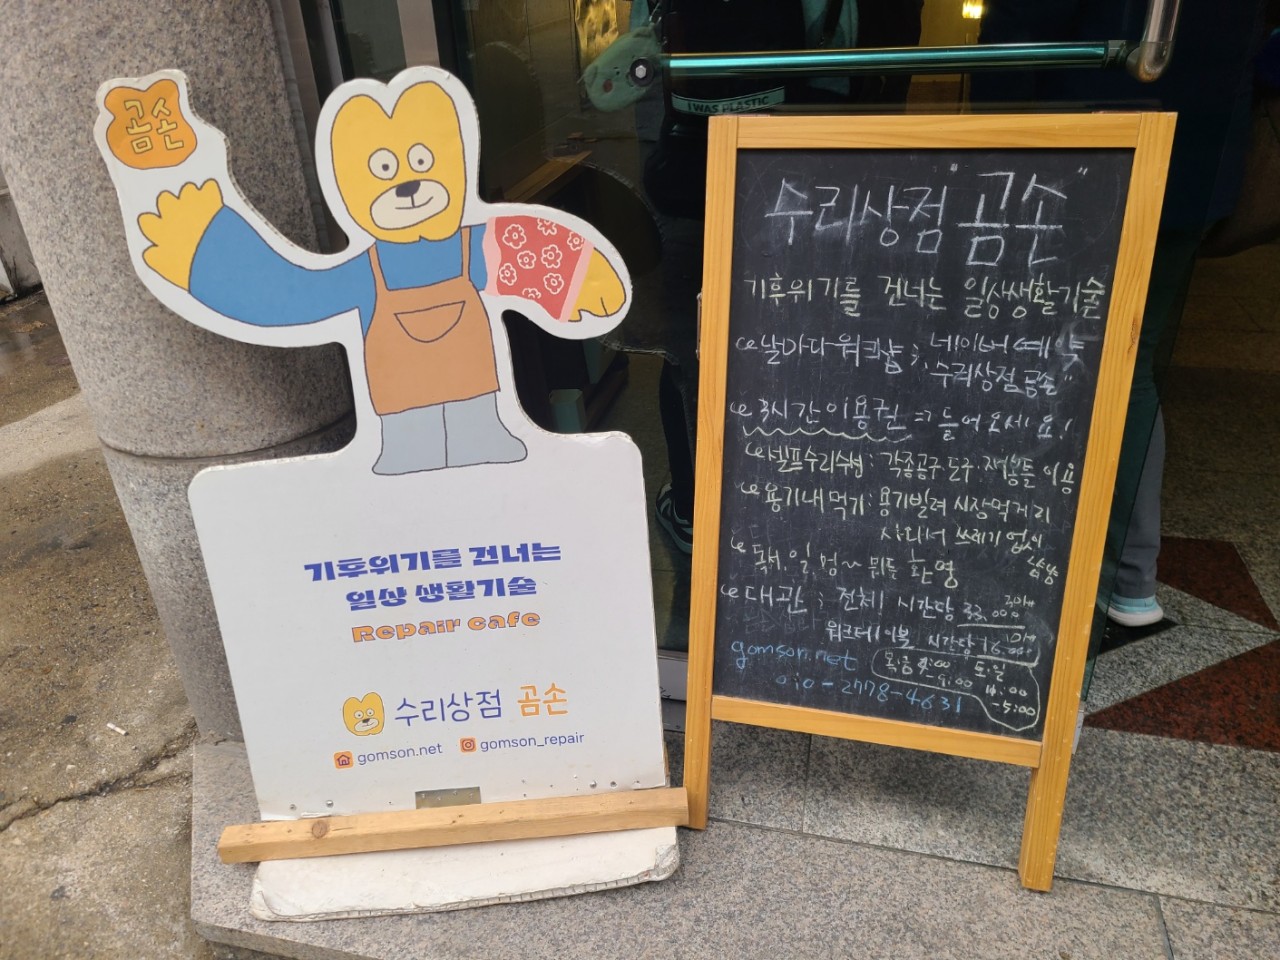 곰손
기후위기를 건너는
일상 생활기술
Repair cafe
수리상점 곰손
gomson.net gomson_repair
I WAS PLASTIC
수리상점 "곰손"
기후위기를 건너는 일상생활기술
날마다 워크샵 : 네이버예약
"수리상점 곰손"
3시간이용권 => 들어오세요!
셀프수리수선 : 각종공구 도구 재봉틀 이용
용기내 먹기 : 용기빌려 시장먹거리
사다서 쓰레기 없이
냠냠
독서, 일, 멍~ 뭐든 환영
대관 : 전체 시간당 33,000
워크테이블 시간당 16,000
gomson.net
010-2778-4631
목금
토·일
-5:00